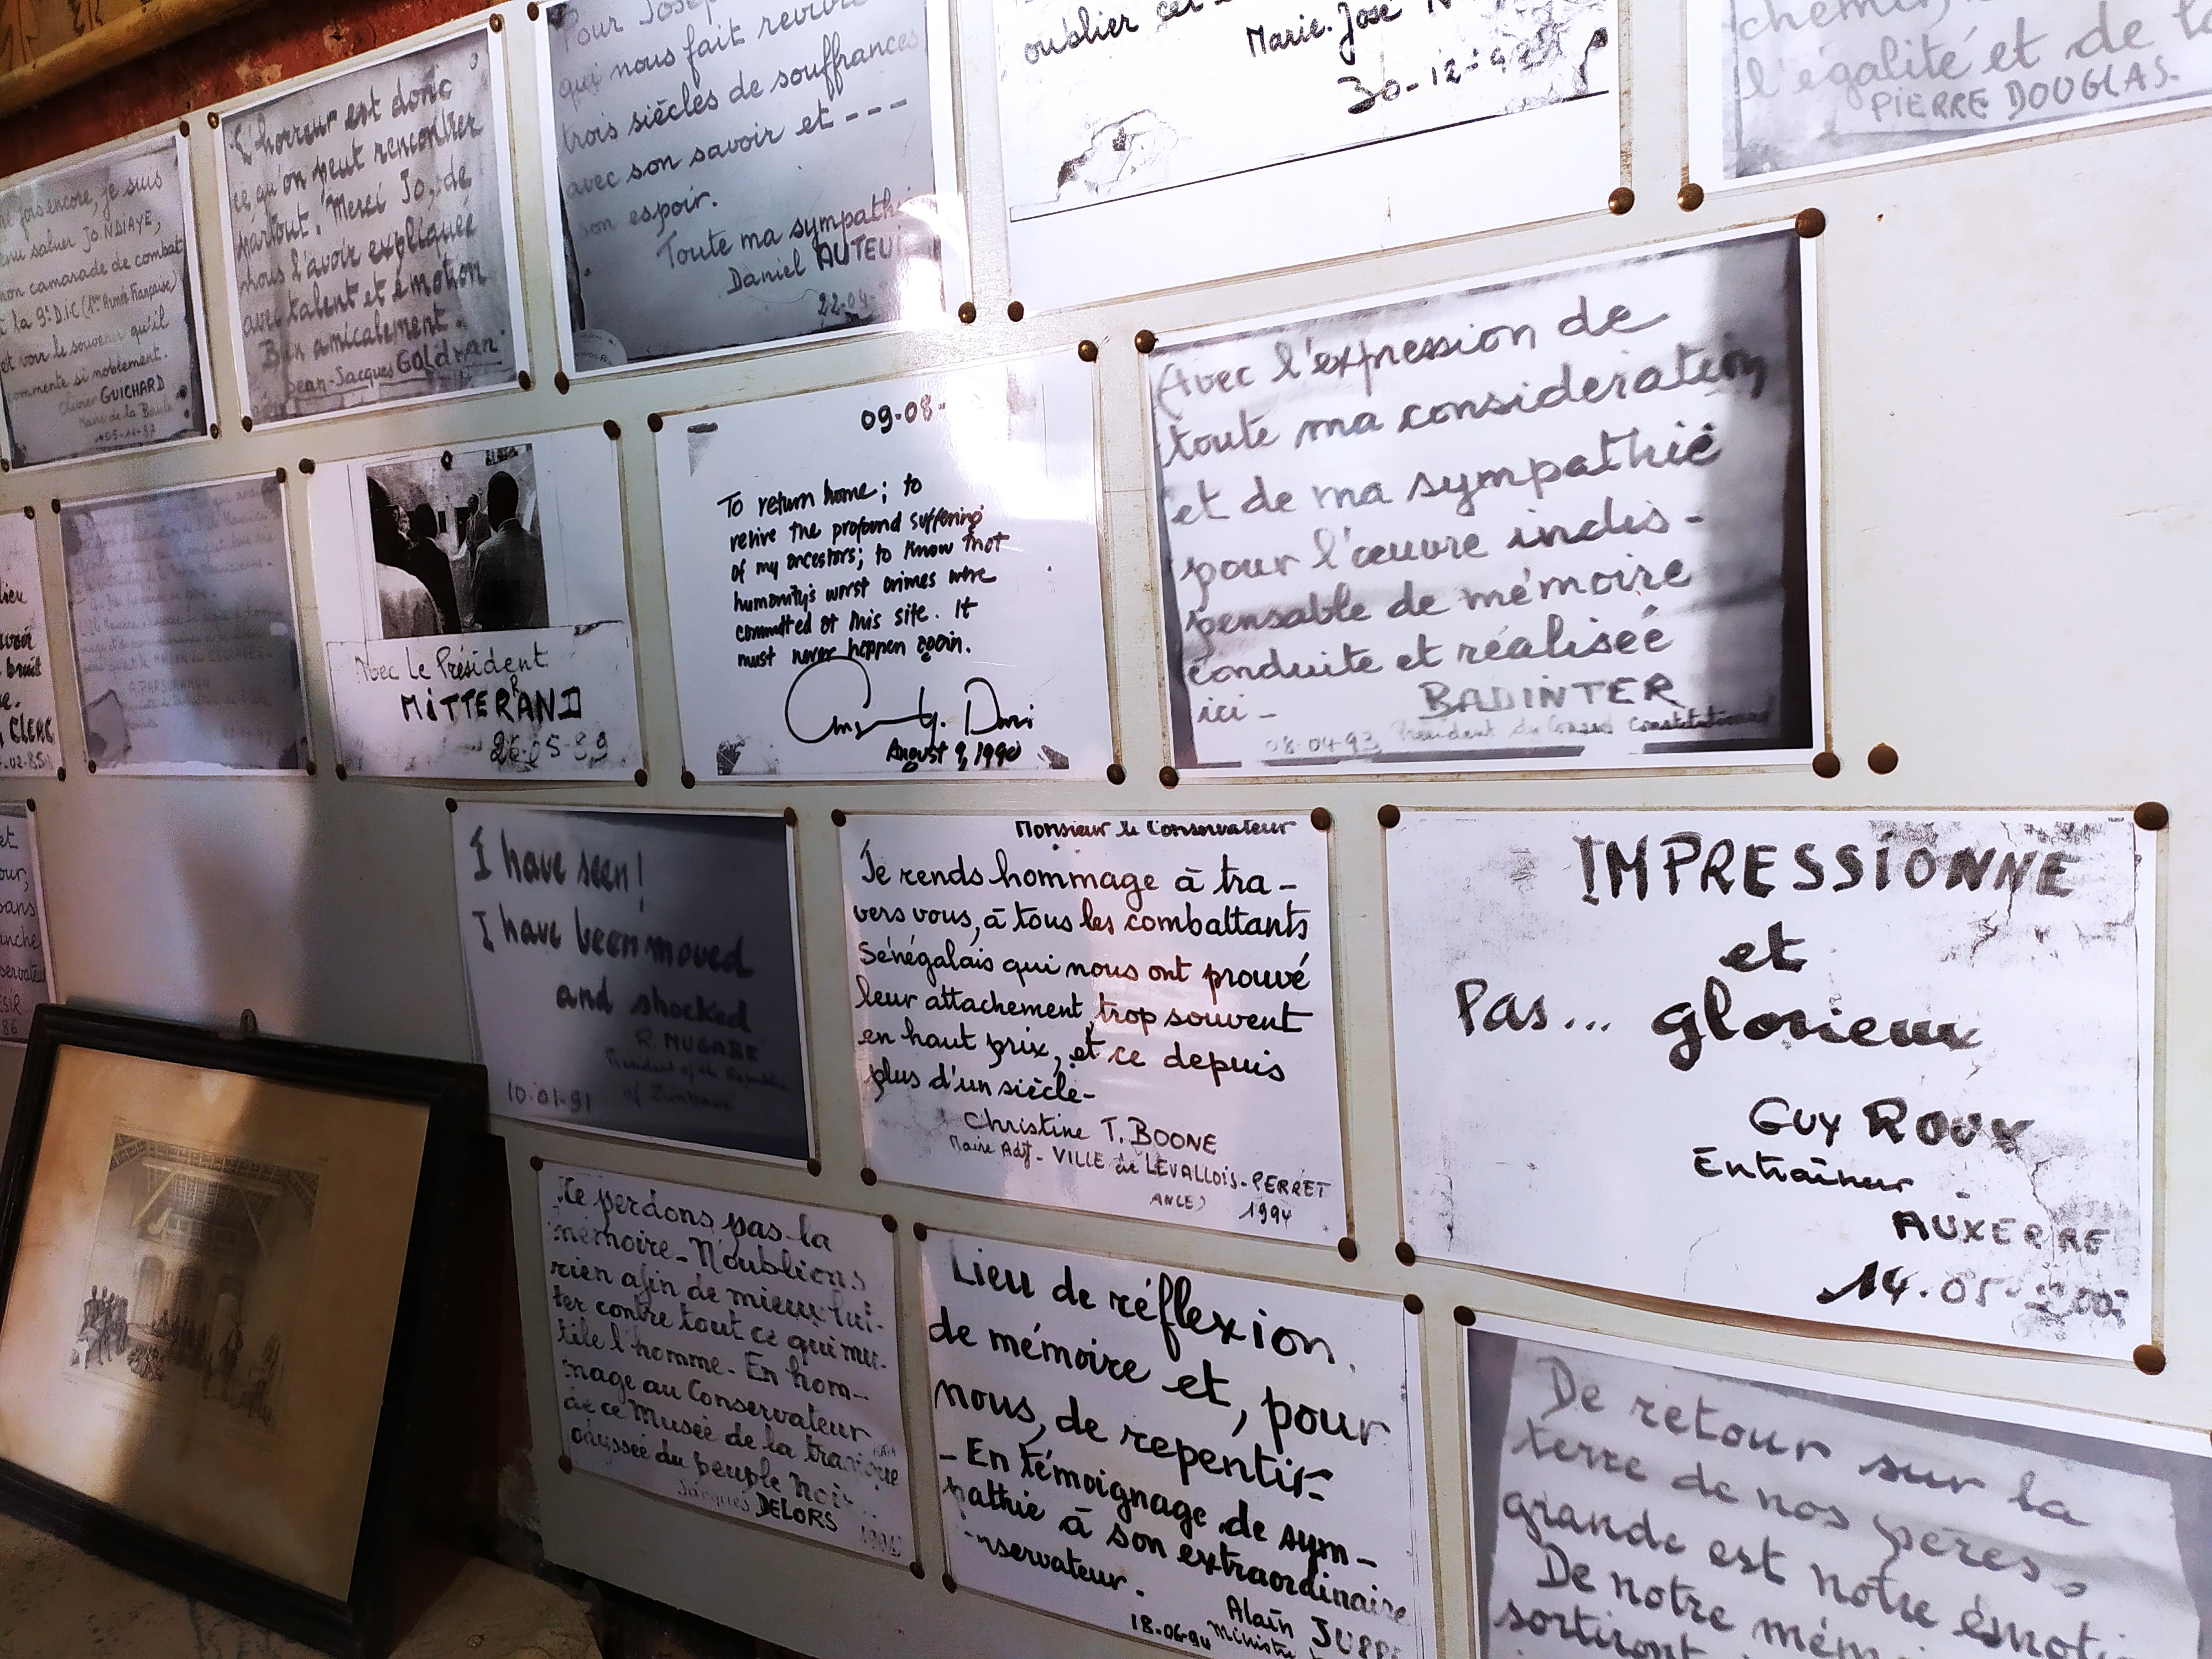 Pour
qui nous fait revivre
trois siècles de souffrances
avec son savoir et ---
son espoir.
Toute ma sympathie
Daniel AUTEUI
22-04-
oublier cet
Marie-José
30-12-92
chemin,
l'égalité et de
PIERRE DOUGLAS.
L'horreur est donc
ce qu'on peut rencontrer
partout. Merci Jo, de
nous l'avoir expliquée
avec talent et émotion
Bien amicalement.
Jean-Jacques GOLDMAN
fois encore, je suis
venu saluer JO. NDIAYE,
mon camarade de combat
à la 9e D.I.C (1ère Armée Française)
et voir le souvenir qu'il
commente si noblement.
Olivier GUICHARD
Maire de la Baule
Avec l'expression de
toute ma consideration
et de ma sympathie
pour l'œuvre indis-
pensable de mémoire
conduite et réalisée
ici -
BADINTER
08-04-93 Président du Conseil Constitutionnel
09-08-
To return home; to
relive the profound suffering
of my ancestors; to know that
humanity's worst crimes were
committed at this site. It
must never happen again.
August 9, 1990
Avec le Président
MITTERRAND
26-05-89
A. PARSURAMEN
CLERC
-02-85
I have seen!
I have been moved
and shocked
R. MUGABE
President of the Republic
of Zimbabwe
10.01-91
Monsieur le Conservateur
Je rends hommage à tra-
vers vous, à tous les combattants
Sénégalais qui nous ont prouvé
leur attachement, trop souvent
en haut prix, et ce depuis
plus d'un siècle-
Christine T. BOONE
Maire Adjt - VILLE de LEVALLOIS-PERRET
1994
IMPRESSIONNE
et
Pas... glorieux
GUY ROUX
Entraîneur -
AUXERRE
14-05-200
Ne perdons pas la
mémoire - N'oublions
rien afin de mieux lut-
ter contre tout ce qui mu-
tile l'homme - En hom-
mage au Conservateur
de ce Musée de la tragique
odyssée du peuple Noir
Jacques DELORS
Lieu de réflexion,
de mémoire et, pour
nous, de repentir-
- En témoignage de sym-
pathie à son extraordinaire
nservateur.
Alain JUPPE
18-06-94 Ministre
De retour sur la
terre de nos pères,
grande est notre émoti
De notre mém
sortiront